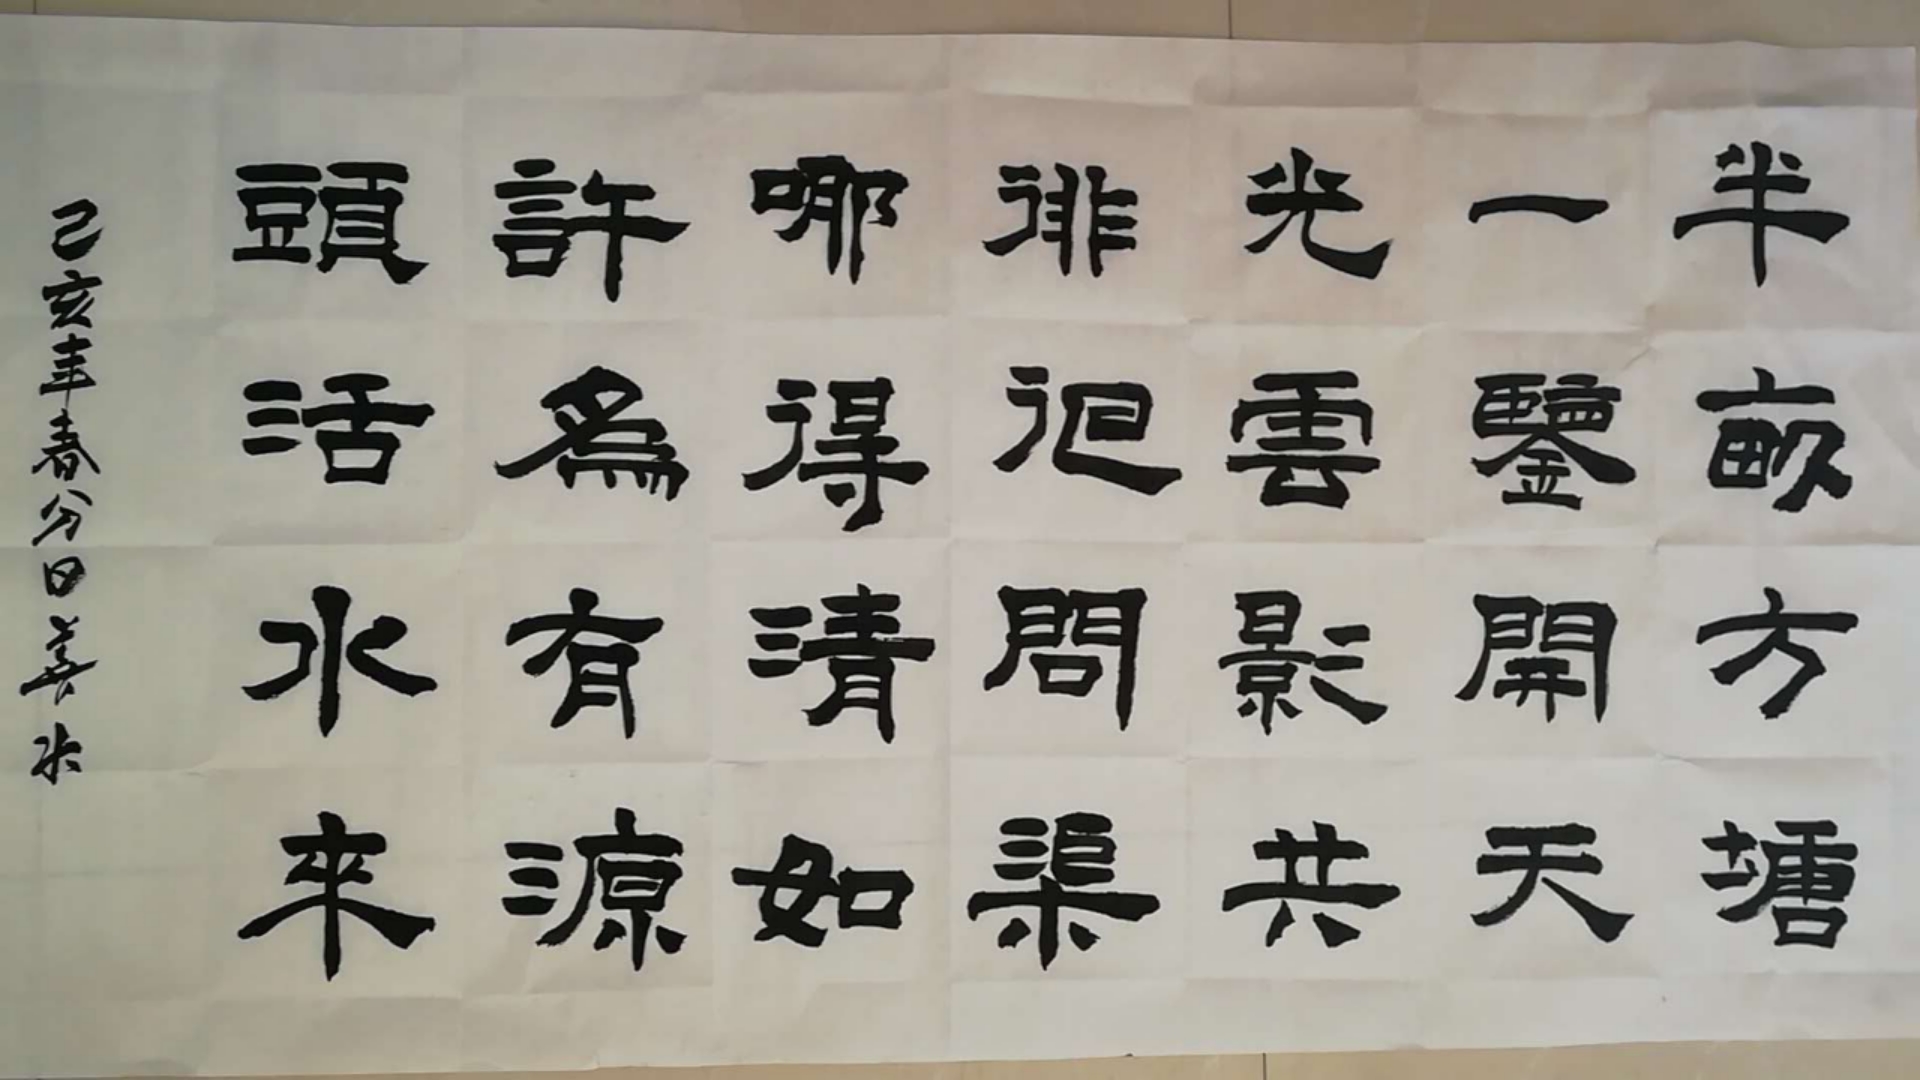 半畝方塘
一鑒開天
光雲影共
徘徊問渠
哪得清如
許為有源
頭活水來
己亥年春分日善水